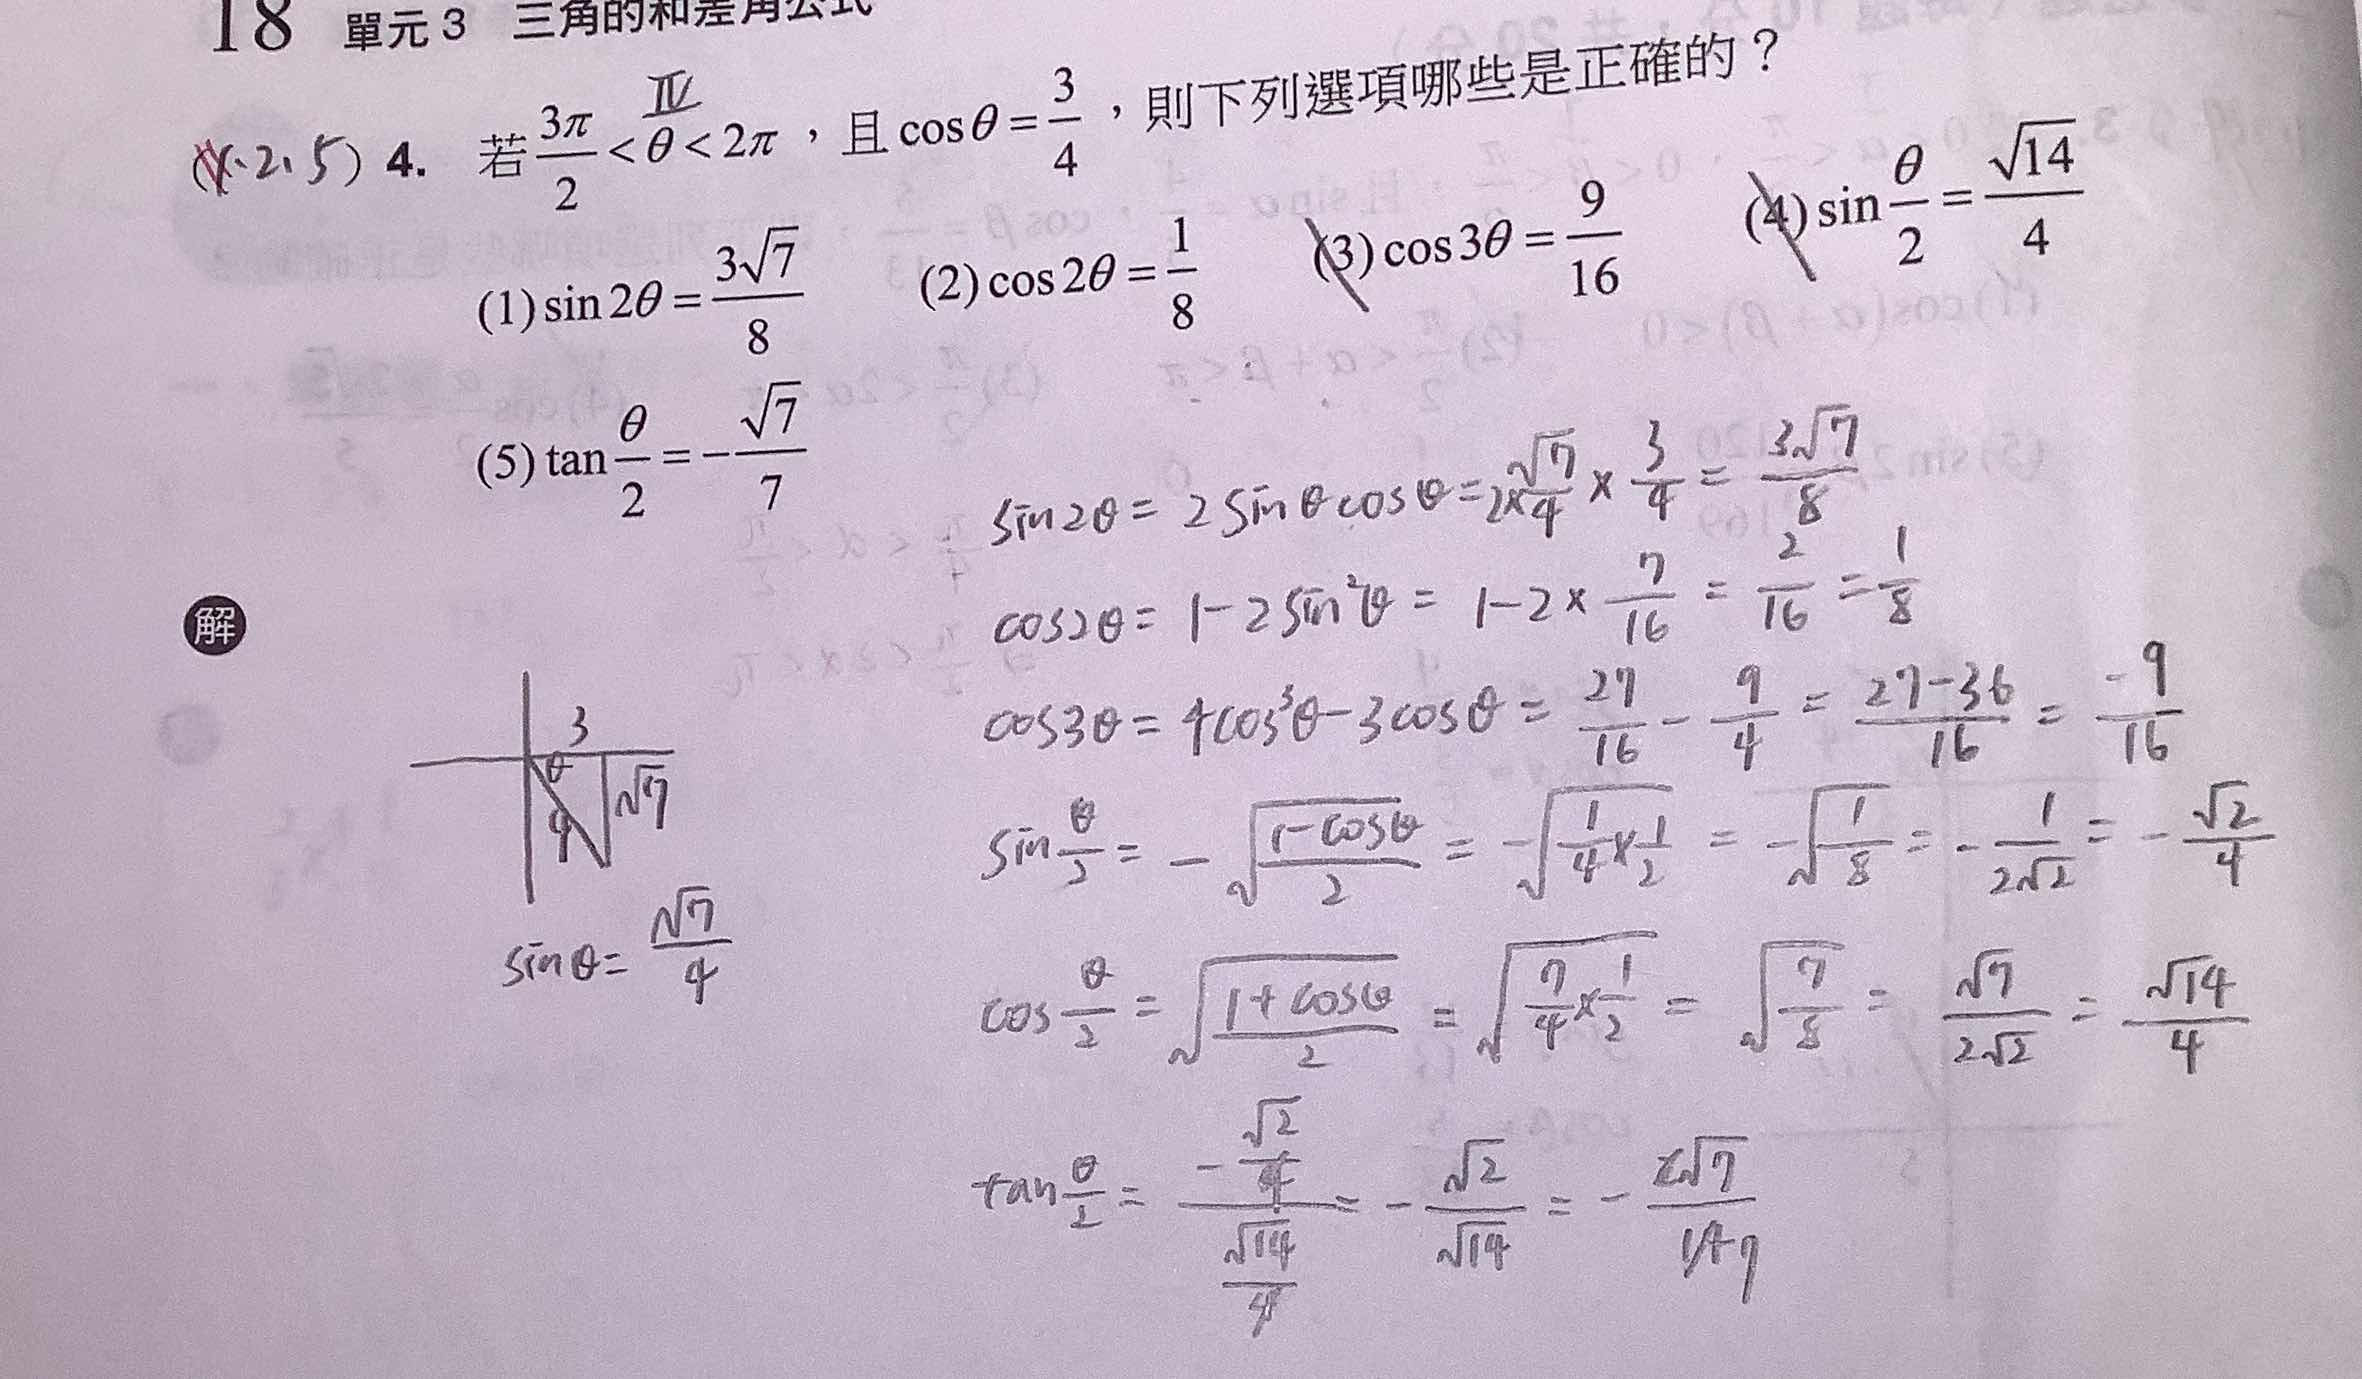 18 單元 3 三角的和差角公式
IV
(1、2、5) 4. 若 3π/2 < θ < 2π，且 cosθ = 3/4，則下列選項哪些是正確的？
(1) sin2θ = 3√7/8 (2) cos2θ = 1/8 (3) cos3θ = 9/16 (4) sin θ/2 = √14/4
(5) tan θ/2 = -√7/7
sin2θ = 2sinθcosθ = 2×√7/4 × 3/4 = 3√7/8
解
cos2θ = 1-2sin²θ = 1-2×7/16 = 2/16 = 1/8
cos3θ = 4cos³θ-3cosθ = 27/16 - 9/4 = 27-36/16 = -9/16
3
θ
4 √7
sin θ/2 = -√(1-cosθ/2) = -√(1/4×1/2) = -√(1/8) = -1/2√2 = -√2/4
sinθ = √7/4
cos θ/2 = √(1+cosθ/2) = √(7/4×1/2) = √(7/8) = √7/2√2 = √14/4
tan θ/2 = (-√2/4)/(√14/4) = -√2/√14 = -2√7/14 7